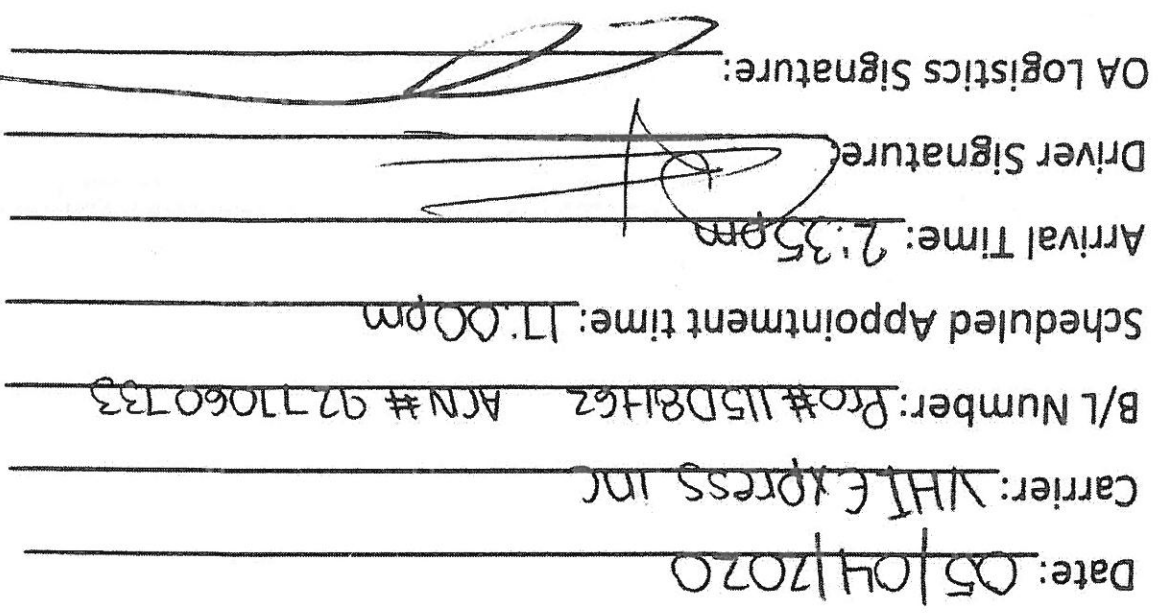 Date: 05/04/2020
Carrier: VHI Express inc
B/L Number: Pro# 115D81462 ACN# 9277060733
Scheduled Appointment time: 17:00pm
Arrival Time: 2:35pm
Driver Signature:
OA Logistics Signature: